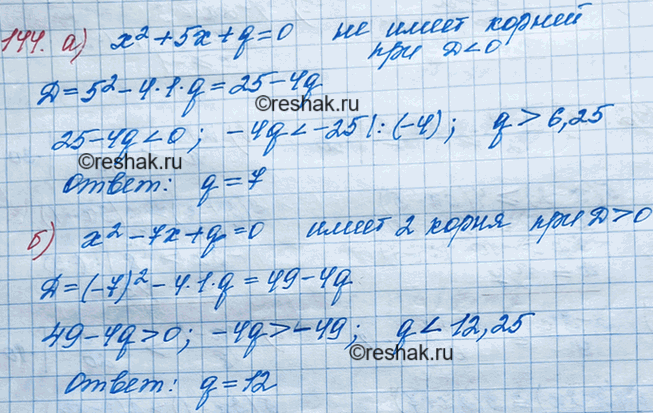 144. а) x² + 5x + q = 0 не имеет корней
при D < 0
D = 5² - 4·1·q = 25 - 4q
©reshak.ru
25 - 4q < 0; -4q < -25 |: (-4); q > 6,25
©reshak.ru
Ответ: q = 7
б) x² - 7x + q = 0 имеет 2 корня при D > 0
D = (-7)² - 4·1·q = 49 - 4q
49 - 4q > 0; -4q > -49; q < 12,25
©reshak.ru
Ответ: q = 12